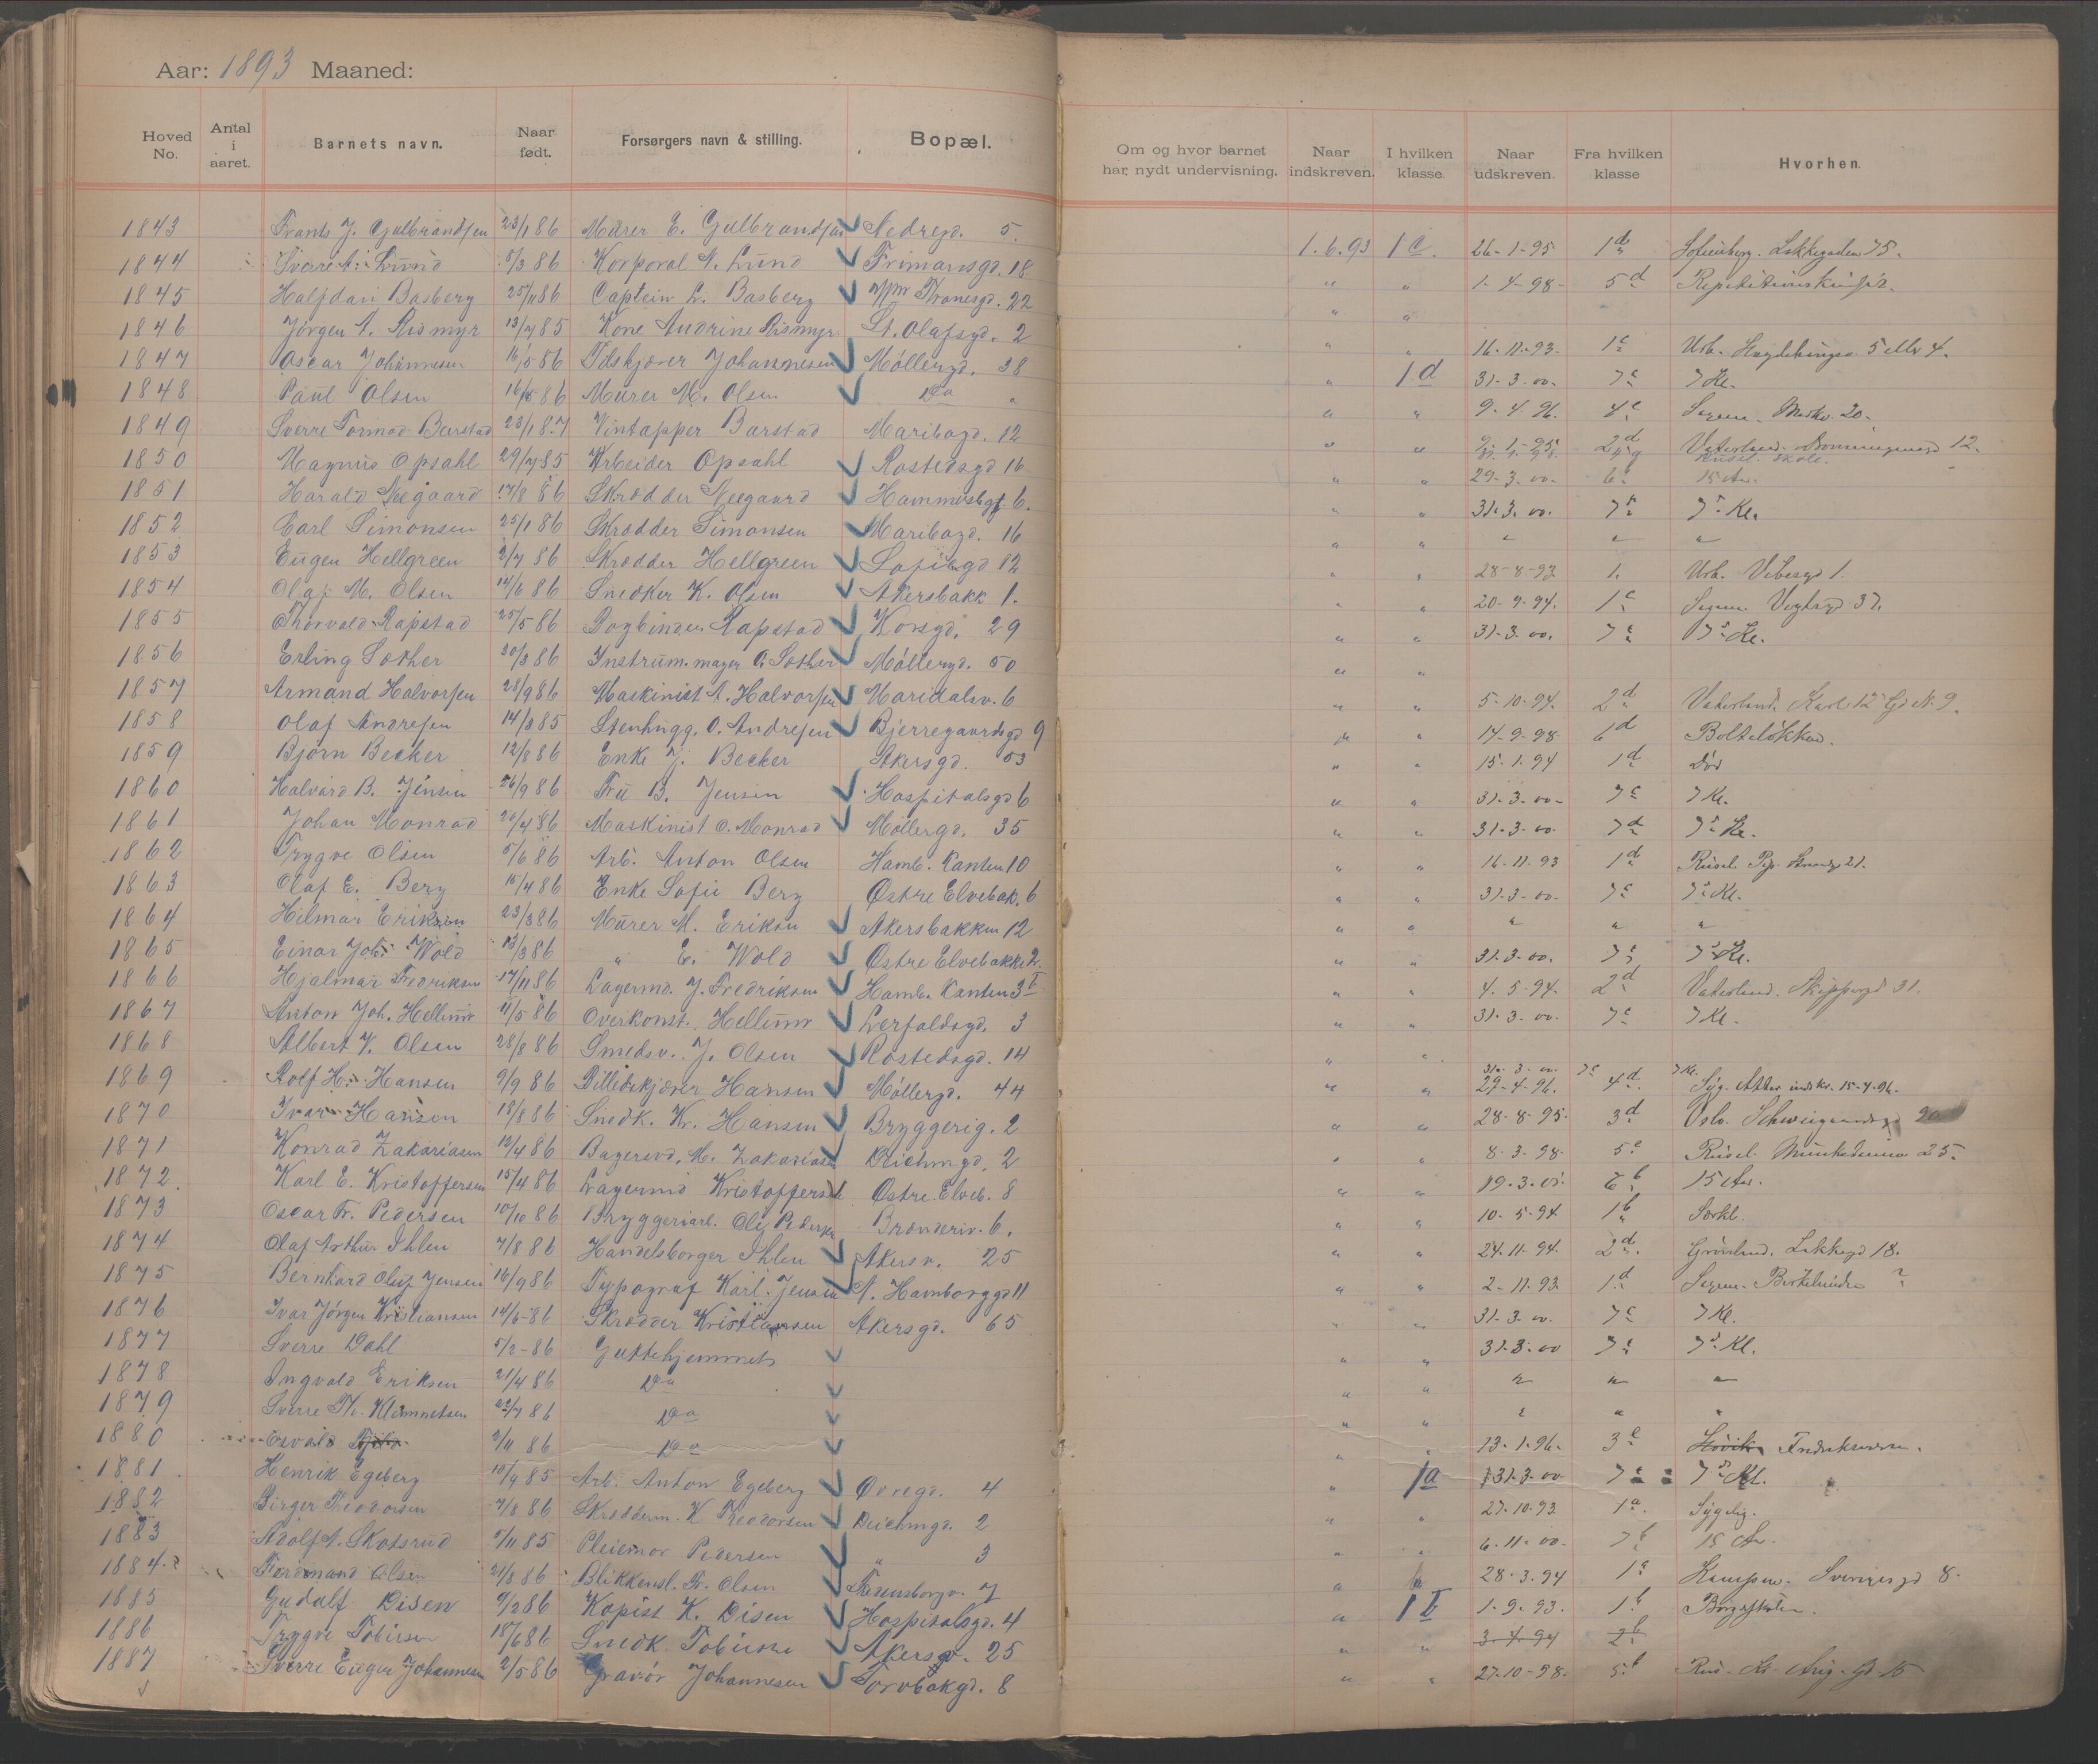 Aar: 1893 Maaned:
Hoved No. Antal i aaret. Barnets navn. Naar født. Forsørgers navn & stilling. Bopæl. Om og hvor barnet har nydt undervisning. Naar indskreven. I hvilken klasse. Naar udskreven. Fra hvilken klasse Hvorhen.
1843 Frants J. Gulbrandsen 23/1 86 Murer E. Gulbrandsen Nedregd. 5. 1.6.93 1 c. 26-1-95 1 d Sofienberg. Lakkegaden 75.
1844 Sverre A. Lund 5/3 86 Korporal N. Lund Frimansgd. 18 " " 1-4-98- 5 d
1845 Halfdan Basberg 25/11 86 Captein L. Basberg Thranesgd. 22 " "
1846 Jørgen A. Rismyr 13/7 85 Kone Andrine Rismyr St. Olafsgd. 2 " " 16-11-93. 1 c Urb.
1847 Oscar Johannesen 16/5 86 Johannesen Møllergd. 38 " 1 d 31-3-00. 7 c 7 Kl.
1848 Paul Olsen 16/5 86 Murer M. Olsen Do " " " 9-4-96. 4 c Sagene. 20.
1849 Sverre Tormod Barstad 23/1 87 Vintapper Barstad Maribogd. 12 " " 9-1-95 2 d Vaterland. Dronningensgd 12.
1850 Magnus Opsahl 29/7 85 Arbeider Opsahl Rostedsgd 16 " " 29-3-00. 6 15 Aar.
1851 Harald Neegaard 17/8 86 Skrædder Neegaard Hammersbgt 6. " " 31-3.00. 7 7 Kl.
1852 Carl Simonsen 25/1 86 Skrædder Simonsen Maribogd. 16 " " " " "
1853 Eugen Hellgreen 2/7 86 Skrædder Hellgreen Sofiegd 12 " " 28-8-93 1. Urb. Vibesgd 1.
1854 Olaf M. Olsen 14/6 86 Snedker K. Olsen Akersbakk 1. " " 20-9-94. 1 c Sagene. Vogtsgd 37.
1855 Thorvald Rapstad 25/5 86 Bogbinder Rapstad Korsgd. 29 " " 31-3-00. 7 c 7 Kl.
1856 Erling Sother 30/3 86 Instrum.mager O. Sother Møllergd. 50 " "
1857 Armand Halvorsen 28/9 86 Maskinist A. Halvorsen Maridalsv. 6 " " 5-10-94. 2 d Vaterland. Karl 12 Gd N. 9.
1858 Olaf Andresen 14/8 85 Stenhugg. O. Andresen Bjerregaardsgd 9 " " 14-9-98 6 d Bolteløkken.
1859 Bjørn Becker 12/8 86 Enke J. Becker Akersgd. 53 " " 15-1-94 1 d Død
1860 Halvard B. Jensen 26/9 86 Fru B. Jensen Hospitalsgd 6 " " 31-3-00- 7 c 7 Kl.
1861 Johan Monrad 20/4 86 Maskinist O. Monrad Møllergd. 35 " " 31-3-00. 7 d 7 Kl.
1862 Trygve Olsen 5/6 86 Arb. Anton Olsen Hamb. Kanten 10 " " 16-11-93 1 d Rusel.
1863 Olaf E. Berg 15/4 86 Enke Sofie Berg Østre Elvebak. 6 " " 31-3-00- 7 c 7 Kl.
1864 Hilmar Eriksen 23/3 86 Murer M. Eriksen Akersbakken 12 " " " " "
1865 Einar Joh. Wold 13/3 86 " E. Wold Østre Elvebakke 2. " " 31-3-00. 7 7 Kl.
1866 Hjalmar Fredriksen 17/11 86 Lagermd. J. Fredriksen Hamb. Kanten 3 b " " 4-5-94. 2 d Vaterland. Skippergd 31.
1867 Anton Joh. Hellum 11/5 86 Overkonst. Hellum Lerfaldsgd. 3 " " 31-3-00. 7 c 7 Kl.
1868 Albert V. Olsen 28/8 86 Smedsv. J. Olsen Rostedsgd. 14 " "
1869 Rolf H. Hansen 9/9 86 Billedskjærer Hansen Møllergd. 44 " " 31-3-00 7 c 7 Kl. 29-4-96. 4 d Syg. Atter indskr. 15-4-96.
1870 Ivar Hansen 18/8 86 Snedk. Kr. Hansen Bryggerig. 2 " " 28-8-95. 3 d Oslo. Schweigaardsgd 20
1871 Konrad Zakariasen 12/4 86 Bagersv. M. Zakariasen Deichmgd. 2 " " 8-3-98- 5 c Rusel. Munkedamsv 25.
1872 Karl E. Kristoffersen 15/4 86 Lagermd Kristoffersen Østre Elveb. 8 " " 19-3-01. 6 b 15 Aar.
1873 Oscar Fr. Pedersen 10/10 86 Bryggeriarb. Ole Pedersen Brønderiv. 6. " " 10-5-94 1 b Særkl.
1874 Olaf Arthur Ihlen 7/8 86 Handelsborger Ihlen Akersv. 25 " " 24-11-94. 2 d. Grønland. Lakkegd 18.
1875 Bernhard Oluf Jensen 16/9 86 Typograf Karl Jensen N. Hamborggd 11 " " 2-11-93 1 d Sagene. Birkelunden ?
1876 Ivar Jørgen Kristiansen 14/6-86 Skrædder Kristiansen Akersgd. 65 " " 31-3-00. 7 c 7 Kl.
1877 Sverre Dahl 5/2-86 Guttehjemmet " " 31-3-00 7 c 7 Kl.
1878 Ingvald Eriksen 21/4 86 Do " " " " "
1879 Sverre Th. Klemmetsen 22/7 86 Do " " " " "
1880 Osvald 2/11 86 Do " " 13-1-96- 3 c Fredriksværn.
1881 Henrik Egeberg 10/9 85 Arb. Anton Egeberg Øvregd. 4 " 1 a 31-3-00 7 c 7 Kl.
1882 Birger Theodorsen 7/8 86 Skræderm. K Theodorsen Deichmgd. 2 " " 27-10-93 1 a. Sygelig.
1883 Adolf A. Skotsrud 5/11 85 Pleiemor Pedersen " 3 " " 6-11-00- 7 b 15 Aar.
1884 Ferdinand Olsen 21/8 86 Blikkensl. Fr. Olsen Fredensborgv. 7 " " 28-3-94 1 a Kampen. Sverigesgd 8.
1885 Gudolf Disen 9/2 86 Kopist K. Disen Hospitalsgd. 4 " 1 b 1-9-93. 1 b Borgerskolen.
1886 Trygve Tobiesen 18/6 86 Snedk. Tobiesen Akersv. 25 " " 3-4-94 2 b
1887 Sverre Eugen Johannesen 2/5 86 Gravør Johannesen Torvbakgd. 8 " " 27-10-98. 5 b Rus. Kr. Aug. Gd 15